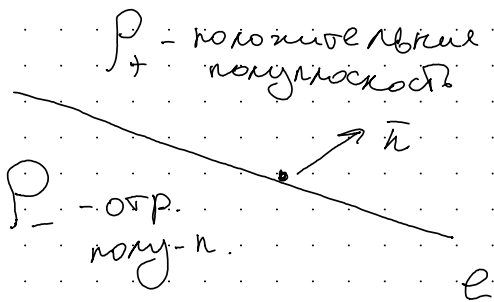 P+ - положительная
полуплоскость
n̄
P- - отр.
полу-п.
e